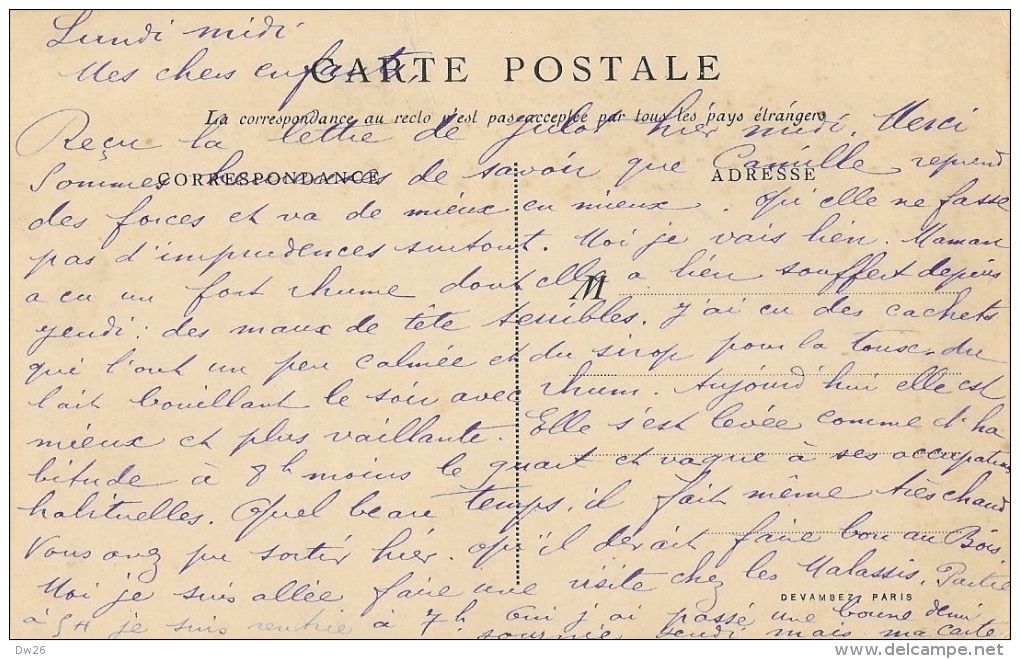 Lundi midi
Mes chers enfants,
CARTE POSTALE
La correspondance au recto n'est pas acceptée par tous les pays étrangers
Reçu la lettre de Julot hier midi. Merci
CORRESPONDANCE
ADRESSE
Sommes heureuses de savoir que Camille reprend
des forces et va de mieux en mieux. Qu'elle ne fasse
pas d'imprudences surtout. Moi je vais bien. Maman
M
a eu un fort rhume dont elle a bien souffert depuis
jeudi : des maux de tête terribles. J'ai eu des cachets
qui l'ont un peu calmée et du sirop pour la toux, du
lait bouillant le soir avec rhum. Aujourd'hui elle est
mieux et plus vaillante. Elle s'est levée comme d'ha
bitude à 8h moins le quart et vaque à ses occupations
habituelles. Quel beau temps, il fait même très chaud
Vous avez pu sortir hier. Qu'il devait faire bon au Bois
Moi je suis allée faire une visite chez les Malassis. Partie
DEVAMBEZ PARIS
à 5H je suis rentrée à 7h. Oui j'ai passé une bonne demi
journée jeudi mais ma carte
Dw26
delcampe.net